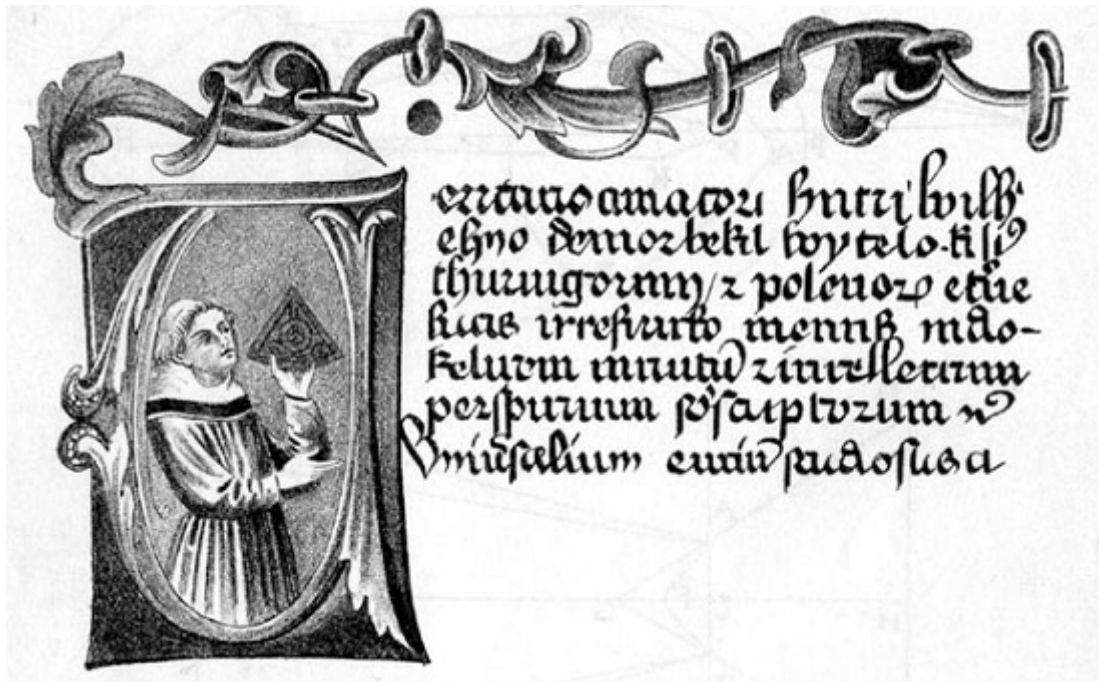 eritatis amatori fratri wilh
elmo demorbeka vvytelo filiꝰ
thuringorum / z polonoꝝ etne
lucis irrefracto mentis radio
felicem intuitū z intellectum
perspicuum sb̓scriptorum
Univ̓salium entiū studiosus a